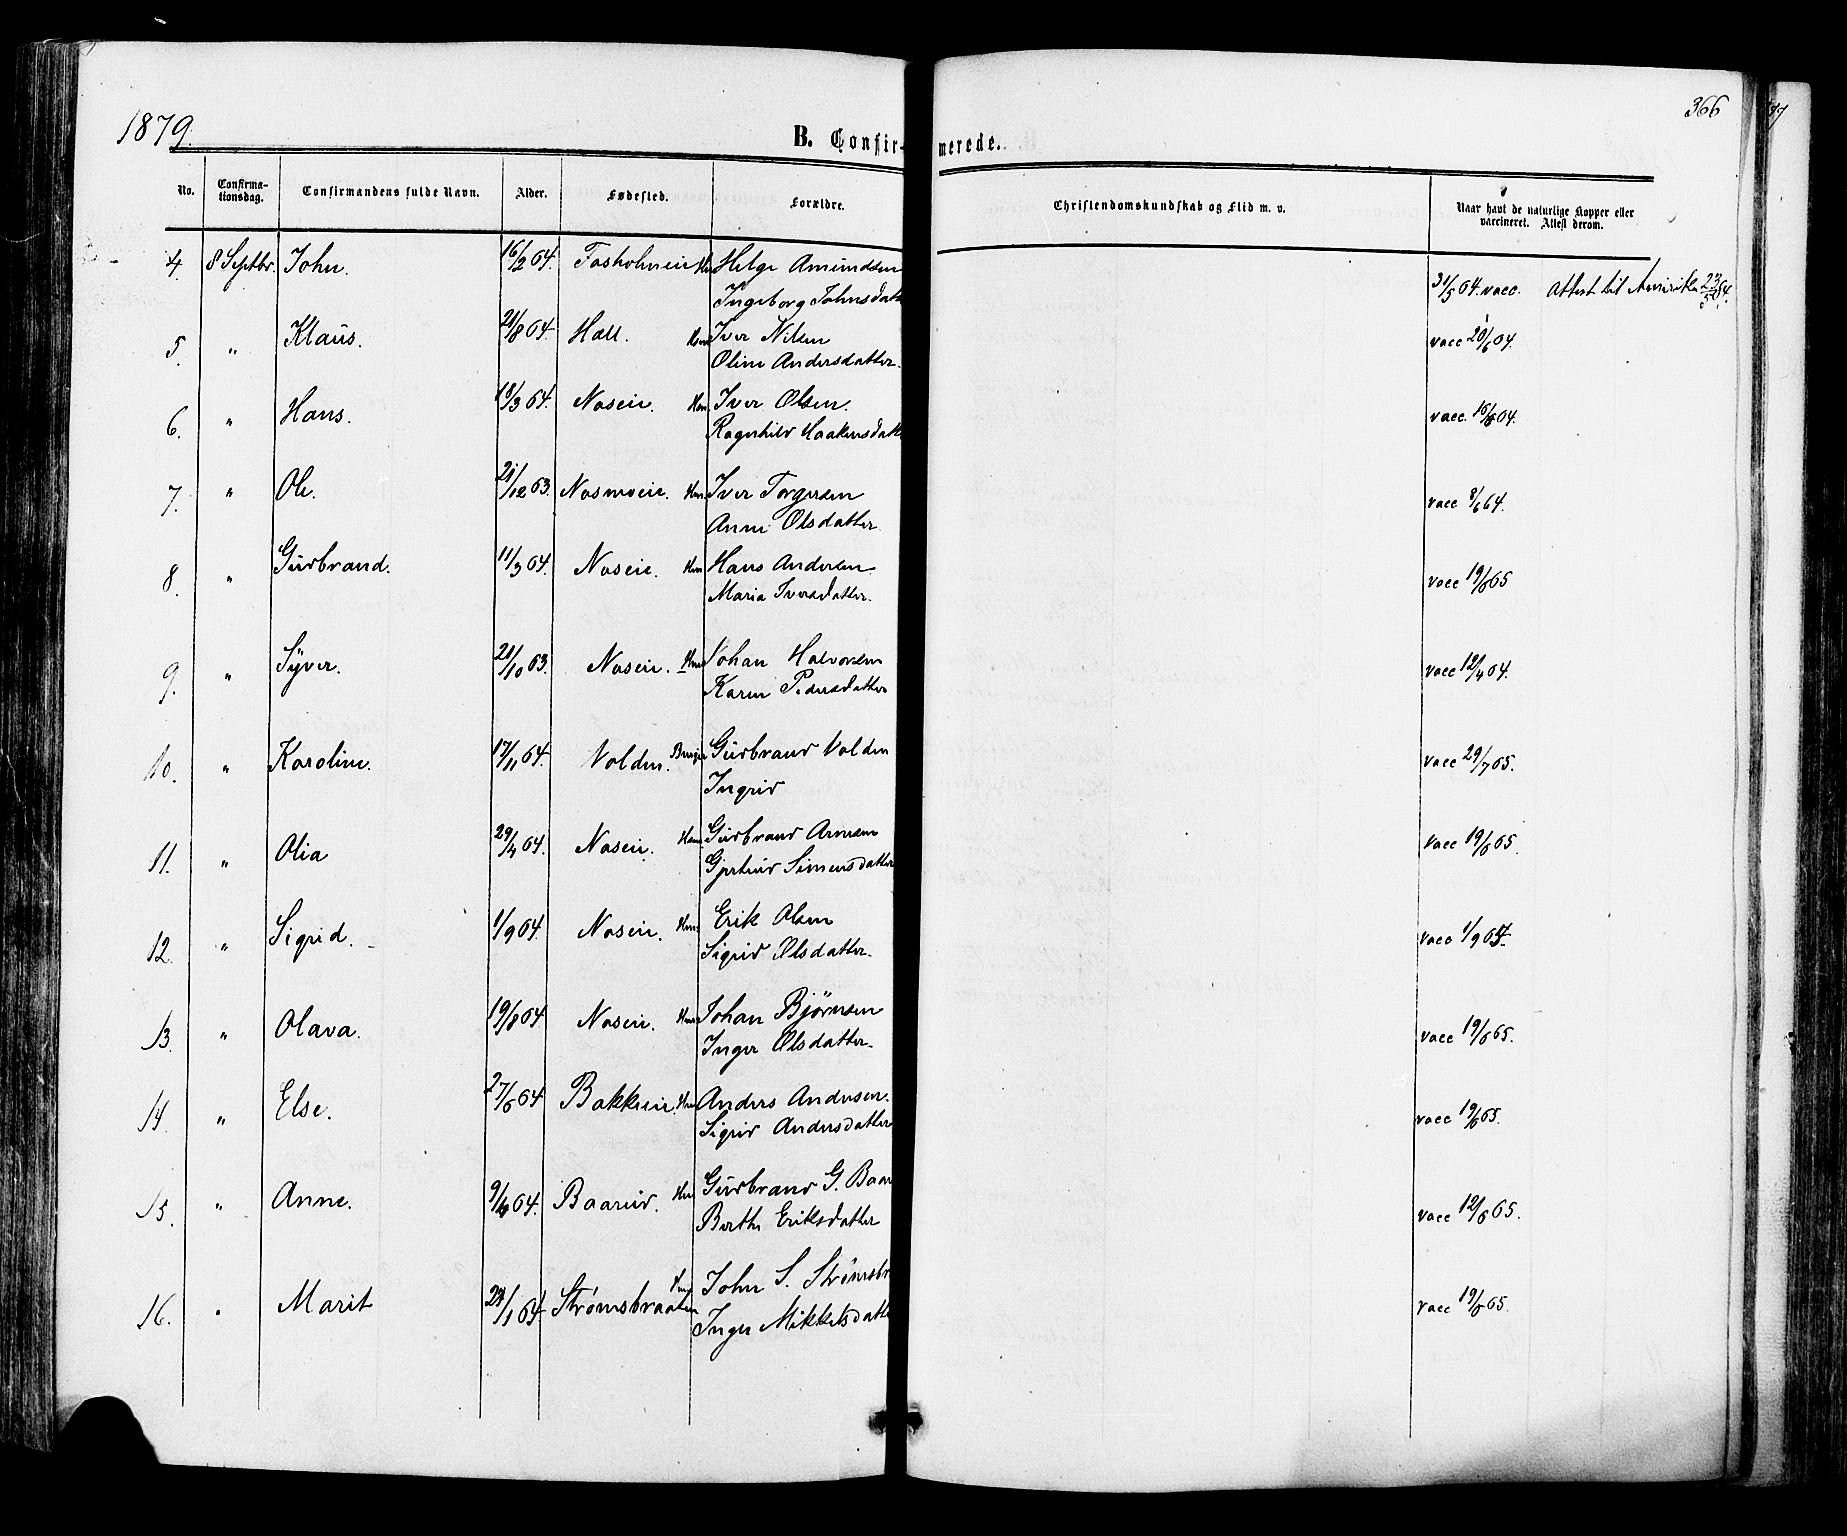 1879.
366
B. Confirmerede.
No. Confirmationsdag. Confirmandens fulde Navn. Alder. Fødested. Forældre. Christendomskundskab og Flid m. v. Naar havt de naturlige Kopper eller vaccineret. Attest derom.
4 8 Septbr. John. 16/2 64. Helge Amundsen 31/5 64. vacc. Attest til Amerika 23/5 84.
Ingeborg Johnsdatt
5. " Klaus. 8 64. Hall. Iver Nilsen vacc 20/6 64.
Oline Andersdatter.
6. " Hans. 18/3 64. Naseie. Iver Olsen. vacc. 64.
Ragnhild Haakensdatt
7. " Ole. 21/12 63. Nasmoeie. Iver Torgersen vacc 8/6 64.
Anne Olsdatter.
8. " Gudbrand. 11/3 64. Naseie. Hans Andersen vacc 19/6 65
Maria Iversdatter.
9. " Syver. 21/10 63. Naseie. Johan Halvorsen vacc 12/4 64.
Karen Pedersdatter
10. " Karoline. 17/11 64. Volden. Gudbrand Volden vacc 29/7 65.
Ingrid
11. " Olia 29/4 64. Naseie. Gudbrand Arnesen vacc 19/6 65.
Gjertrud Simensdatter
12. " Sigrid. 1/9 64. Naseie. Erik Olsen vacc 1/9
Sigrid Olsdatter.
13. " Olava. 19/8 64 Naseie. Johan Bjørnsen vacc 19/6 65.
Inger Olsdatter.
14. " Else. 27/6 64 Bakkeie. Anders Andersen. vacc 19/6 65.
Sigrid Andersdatter
15. " Anne. 64. Baarud. Gudbrand G. Baar vacc 12/6 65.
Berthe Eriksdatter
16. " Marit 1 64. Strømsbraaten John S. Strømsbr vacc 19/6 65.
Inger Mikkelsdatt